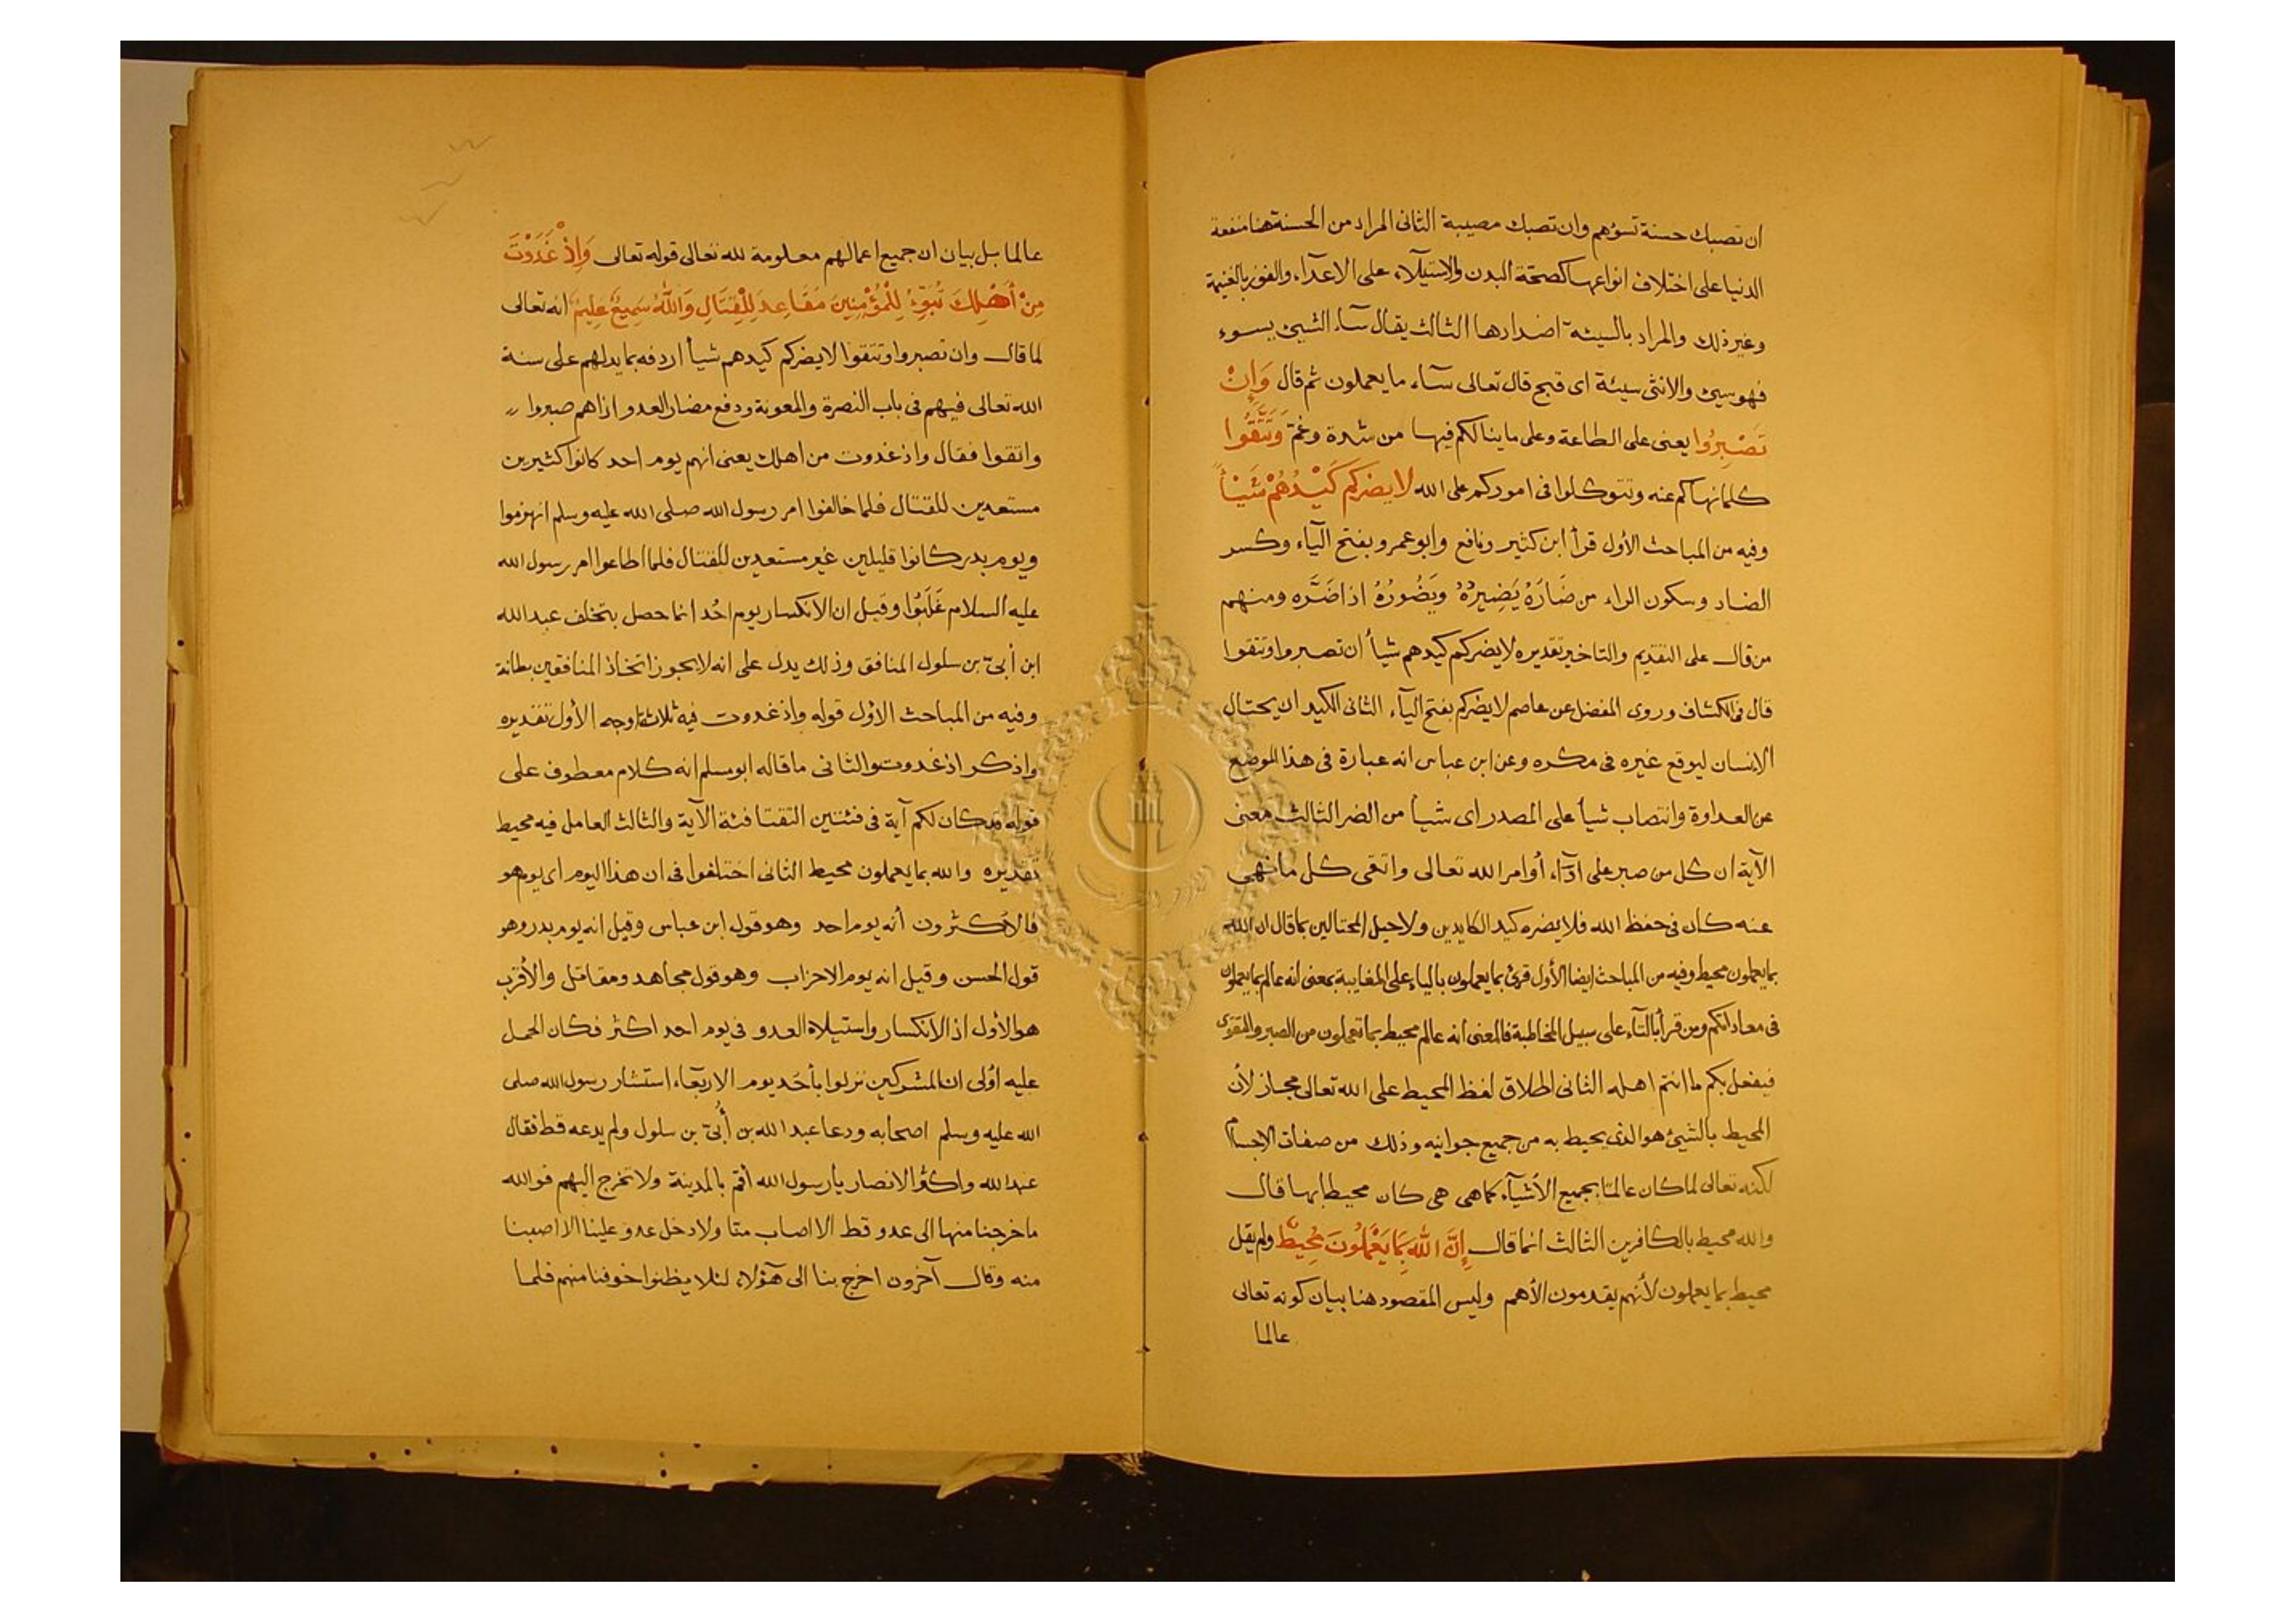 ان تصبك حسنة تسؤهم وان تصبك مصيبة الثانى المراد من الحسنة هنا منفعة
الدنيا على اختلاف انواعها كصحّة البدن والاستيلآء على الاعدآء والفوز بالغنيمة
وغير ذلك والمراد بالسيئة اضدادها الثالث يقال سآء الشيئ يسوء
فهو سيئ والانثى سيئة اى قبح قال تعالى سآء ما يعملون ثم قال وَاِنْ
تَصْبِرُوا يعنى على الطاعة وعلى ما ينالكم فيها من شدة وغمّ وَتَتَّقُوا
كلما نهاكم عنه وتتوكلوا فى اموركم على الله لا يضركم كَيْدُهُمْ شَيْئاً
وفيه من المباحث الأول قرأ ابن كثير ونافع وابو عمرو بفتح اليآء وكسر
الضاد وسكون الراء من ضَارَهُ يَضِيرُهُ ويَضُورُهُ اذا ضَرَّه ومنهم
من قال على التقديم والتاخير تقديره لا يضركم كيدهم شيأ أن تصبروا وتتقوا
قال فى الكشاف وروى المفضل عن عاصم لا يضركم بفتح اليآء الثانى الكيد ان يحتال
الانسان ليوقع غيره فى مكره وعن ابن عباس انه عبارة فى هذا الموضع
عن العداوة وانتصاب شيأ على المصدر اى شيأ من الضر الثالث معنى
الآية ان كل من صبر على ادآء أوامر الله تعالى واتقى كل ما نهى
عنه كان فى حفظ الله فلا يضره كيد الكايدين ولا حيل المحتالين بما قال ان الله
بما يعملون محيط وفيه من المباحث ايضا الأول قرئ بما يعملون بالياء على المغايبة بمعنى انه عالم بما يعملون
فى معاداتكم ومن قرأ بالتآء على سبيل المخاطبة فالمعنى أنه عالم محيط بما تعملون من الصبر والتقوى
فيفعل بكم ما انتم اهله الثانى اطلاق لفظ المحيط على الله تعالى مجاز لأن
المحيط بالشيئ هو الذى يحيط به من جميع جوانبه وذلك من صفات الاجسام
لكنه تعالى لما كان عالمًا بجميع الأشيآء كما هى هى كان محيطا بها قال
والله محيط بالكافرين الثالث انما قال إِنَّ اللهَ بِمَا يَعْمَلُونَ مُحِيطٌ ولم يقل
محيط بما يعملون لأنهم يقدمون الأهم وليس المقصود هنا بيان كونه تعالى
عالما
عالما بل بيان ان جميع اعمالهم معلومة لله تعالى قوله تعالى وَاِذْ غَدَوْتَ
مِنْ أَهْلِكَ تُبَوِّئُ لِلْمُؤْمِنِينَ مَقَاعِدَ لِلْقِتَالِ وَاللهُ سَمِيعٌ عَلِيمٌ انه تعالى
لما قال وان تصبروا وتتقوا لا يضركم كيدهم شيأ اردفه بما يدلهم على سنة
الله تعالى فيهم فى باب النصرة والمعونة ودفع مضار العدو اذا هم صبروا
واتقوا فقال واذ غدوت من اهلك يعنى انهم يوم احد كانوا كثيرين
مستعدين للقتال فلما خالفوا امر رسول الله صلى الله عليه وسلم انهزموا
ويوم بدر كانوا قليلين غير مستعدين للقتال فلما اطاعوا امر رسول الله
عليه السلام غَلَبُوا وقيل ان الانكسار يوم احُد انما حصل بتخلف عبد الله
ابن أبىّ بن سلول المنافق وذلك يدل على انه لا يجوز اتخاذ المنافقين بطانة
وفيه من المباحث الاوّل قوله واذ غدوت فيه ثلاثة اوجه الأول تقديره
واذكر اذ غدوت والثانى ما قاله ابو مسلم انه كلام معطوف على
قوله قد كان لكم آية فى فئتين التقتا فئة الآية والثالث العامل فيه محيط
تقديره والله بما يعملون محيط الثانى اختلفوا فى ان هذا اليوم اى يوم هو
فالاكثرون أنه يوم احد وهو قول ابن عباس وقيل انه يوم بدر وهو
قول الحسن وقيل انه يوم الاحزاب وهو قول مجاهد ومقاتل والأقرب
هو الأول اذ الانكسار واستيلاء العدو فى يوم احد اكثر فكان الحمل
عليه اوُلى ان المشركين نزلوا بأحَد يوم الاربعآء استشار رسول الله صلى
الله عليه وسلم اصحابه ودعا عبد الله بن أُبىّ بن سلول ولم يدعه قط فقال
عبد الله واكثر الانصار يأرسول الله أقم بالمدينة ولا تخرج اليهم فو الله
ما خرجنا منها الى عدو قط الا اصاب منا ولا دخل عدو علينا الا اصبنا
منه وقال آخرون اخرج بنا الى هؤلاء لئلا يظنوا خوفنا منهم فلما